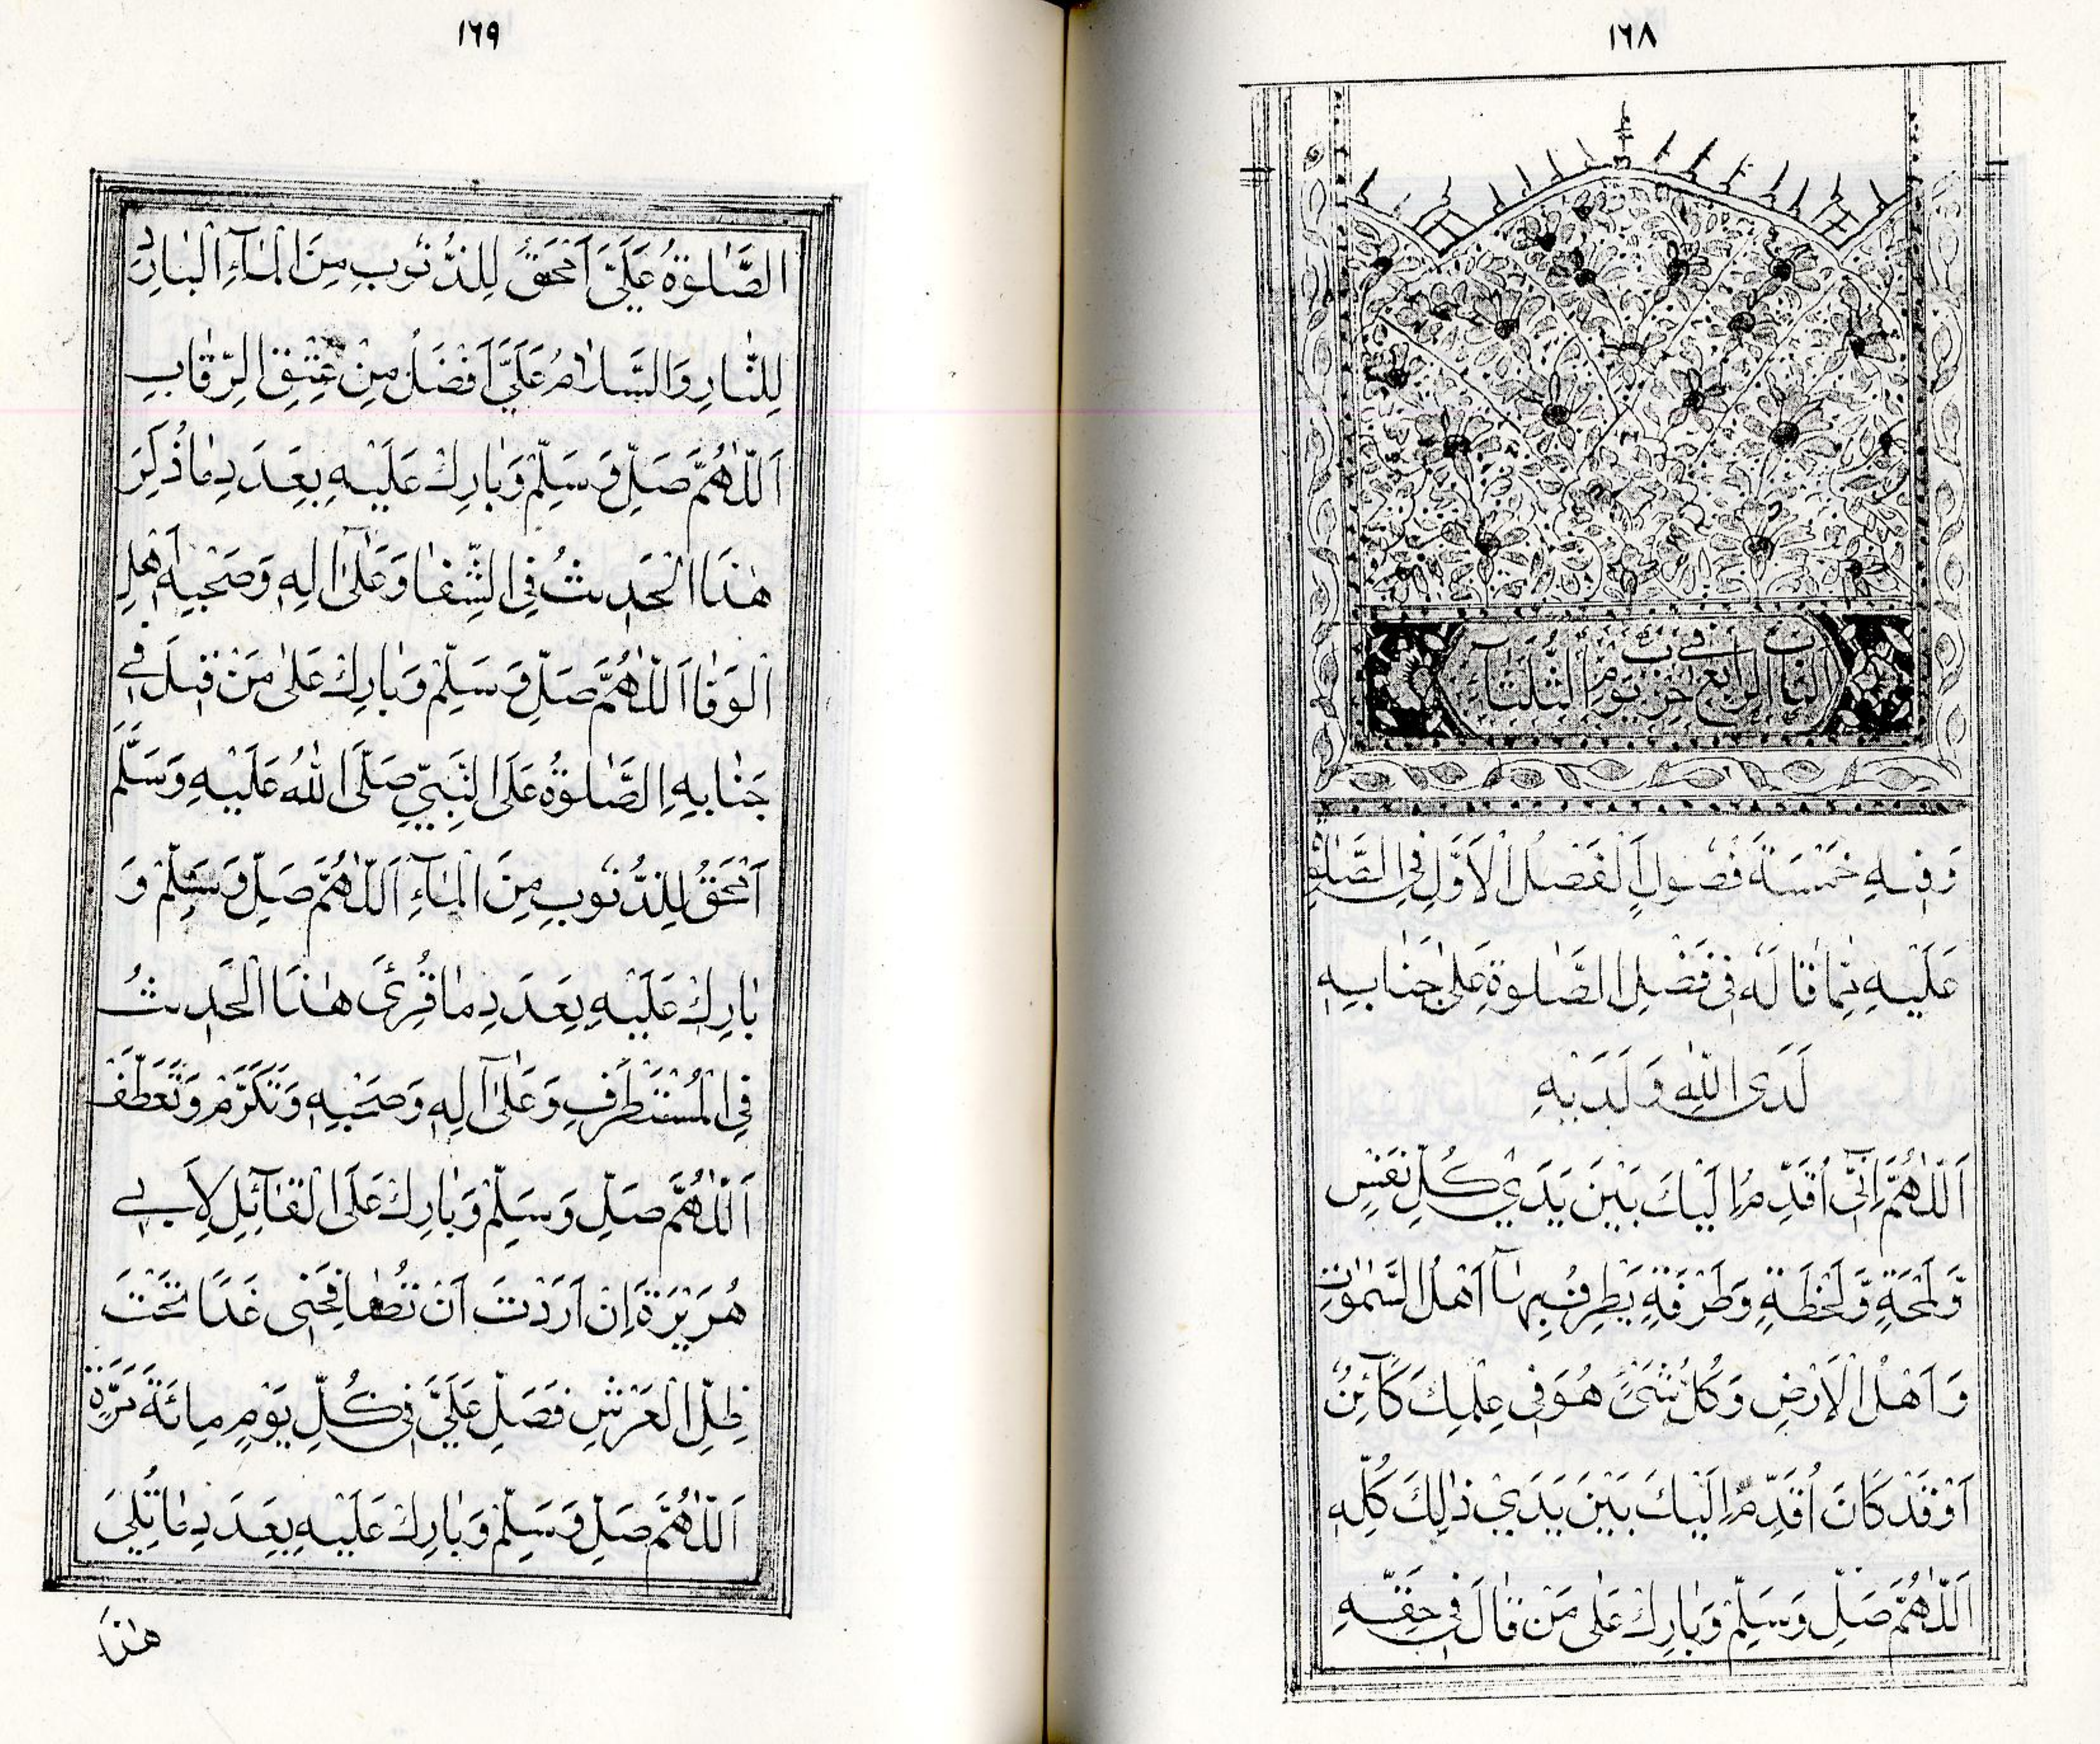 ١٦٨
الباب الرابع في حزب يوم الثلثاء
وَفِيهِ خَمْسَةُ فُصُولٍ اَلْفَصْلُ الْاَوَّلُ فِى الصَّلٰوةِ
عَلَيْهِ بِمَا قَالَهُ فِى فَضْلِ الصَّلٰوةِ عَلىٰ جَنَابِهِ
لَدَى اللّٰهِ وَلَدَيْهِ
اَللّٰهُمَّ اِنِّىٓ اُقَدِّمُ اِلَيْكَ بَيْنَ يَدَيْ كُلِّ نَفَسٍ
وَّلَمْحَةٍ وَّلَحْظَةٍ وَطَرْفَةٍ يَطْرِفُ بِهَآ اَهْلُ السَّمٰوٰتِ
وَاَهْلُ الْاَرْضِ وَكُلُّ شَىْءٍ هُوَ فِى عِلْمِكَ كَآئِنٌ
اَوْقَدْ كَانَ اُقَدِّمُ اِلَيْكَ بَيْنَ يَدَيْ ذٰلِكَ كُلِّهِ
اَللّٰهُمَّ صَلِّ وَسَلِّمْ وَبَارِكْ عَلىٰ مَنْ قَالَ فِى حَقِّهِ
١٦٩
الصَّلٰوةُ عَلَيَّ اَمْحَقُ لِلذُّنُوبِ مِنَ الْمَآءِ الْبَارِدِ
لِلنَّارِ وَالسَّلَامُ عَلَيَّ اَفْضَلُ مِنْ عِتْقِ الرِّقَابِ
اَللّٰهُمَّ صَلِّ وَسَلِّمْ وَبَارِكْ عَلَيْهِ بِعَدَدِ مَا ذُكِرَ
هٰذَا الْحَدِيثُ فِي الشِّفَا وَعَلىٰٓ اٰلِهِ وَصَحْبِهِ اَهْلِ
الْوَفَا اَللّٰهُمَّ صَلِّ وَسَلِّمْ وَبَارِكْ عَلىٰ مَنْ قِيلَ فِي
جَنَابِهِ الصَّلٰوةُ عَلَى النَّبِيِّ صَلَّى اللّٰهُ عَلَيْهِ وَسَلَّمَ
اَمْحَقُ لِلذُّنُوبِ مِنَ الْمَآءِ اَللّٰهُمَّ صَلِّ وَسَلِّمْ وَ
بَارِكْ عَلَيْهِ بِعَدَدِ مَا قُرِئَ هٰذَا الْحَدِيثُ
فِي الْمُسْتَطْرَفِ وَعَلىٰٓ اٰلِهِ وَصَحْبِهِ وَتَكَرَّمْ وَتَعَطَّفْ
اَللّٰهُمَّ صَلِّ وَسَلِّمْ وَبَارِكْ عَلَى الْقَآئِلِ لِاَبِي
هُرَيْرَةَ اِنْ اَرَدْتَ اَنْ تُصَافِحَنِى غَدًا تَحْتَ
ظِلِّ الْعَرْشِ فَصَلِّ عَلَيَّ فِى كُلِّ يَوْمٍ مِائَةَ مَرَّةٍ
اَللّٰهُمَّ صَلِّ وَسَلِّمْ وَبَارِكْ عَلَيْهِ بِعَدَدِ مَا تُلِيَ
هٰذَا